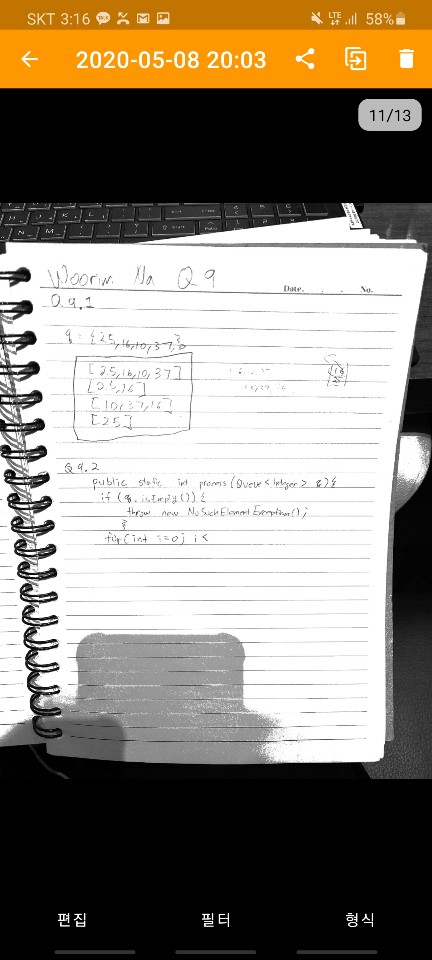 SKT 3:16
LTE
58%
2020-05-08 20:03
11/13
Woorim Na Q9
Date. . . No.
Q.9.1
q = {25,16,10,37,}
[25,16,10,37]
[25,16]
[10,37,16]
[25]
Q9.2
public static int process (Queue<Integer> q){
if (q.isEmpty()) {
throw new NoSuchElementException();
}
for(int i=0; i<
편집
필터
형식